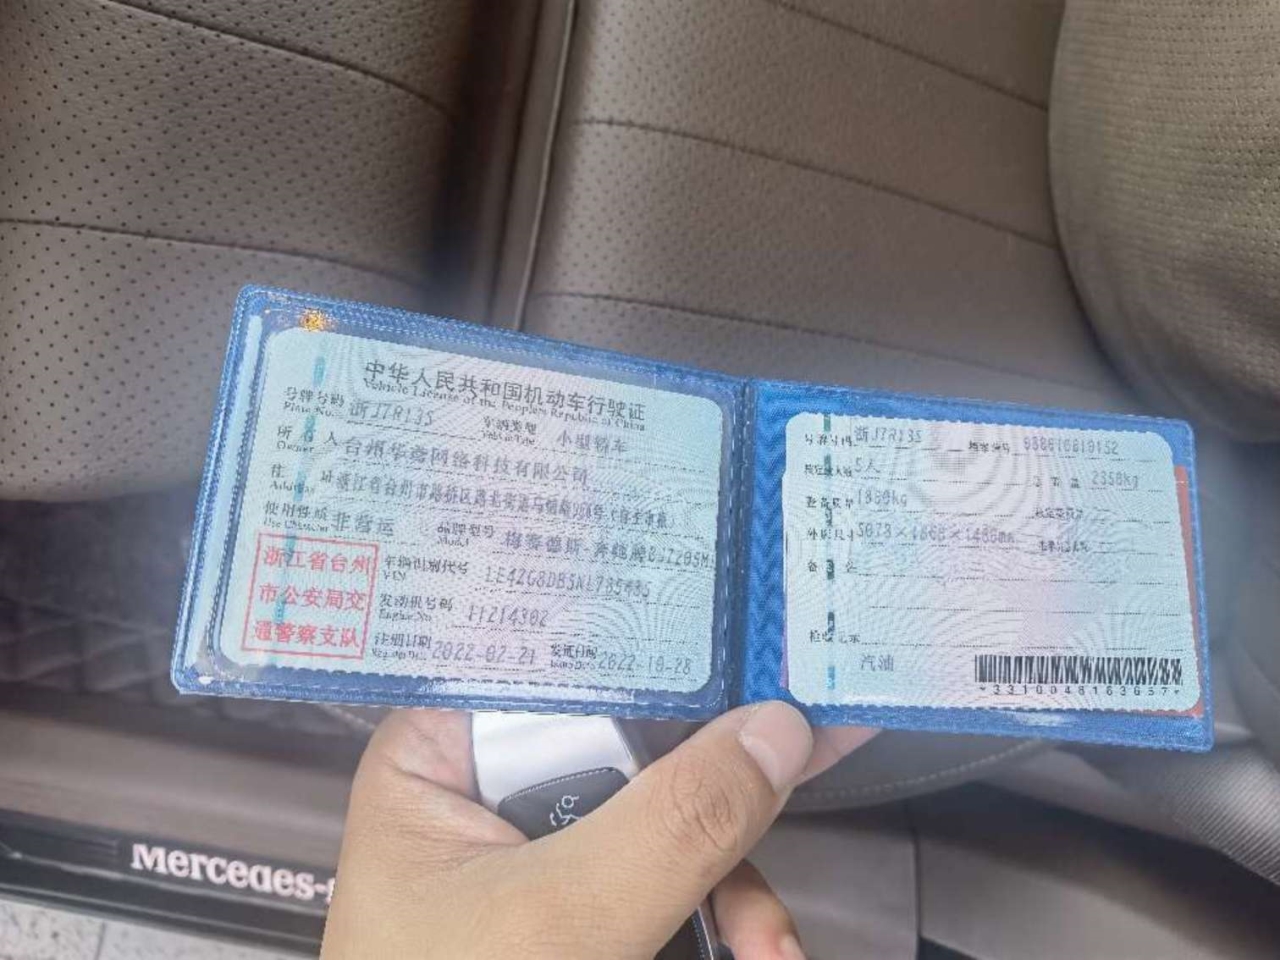 中华人民共和国机动车行驶证
Vehicle License of the People's Republic of China
号牌号码 浙J7R135 车辆类型 小型轿车
Plate No. Vehicle Type
所有人 台州华鑫网络科技有限公司
Owner
住址 浙江省台州市路桥区路北街道
Address
使用性质 非营运 品牌型号 梅赛德斯-奔驰牌
Use Character Model
浙江省台州
市公安局交
通警察支队
车辆识别代号
VIN
发动机号码 11214302
Engine No.
注册日期 2022-02-21 发证日期 2022-10-28
Register Date Issue Date
号牌号码 浙J7R135 档案编号
核定载人数 5人 总质量 2350kg
整备质量 1880kg 核定载质量
外廓尺寸 准牵引总质量
备注
检验记录
汽油
Mercedes-